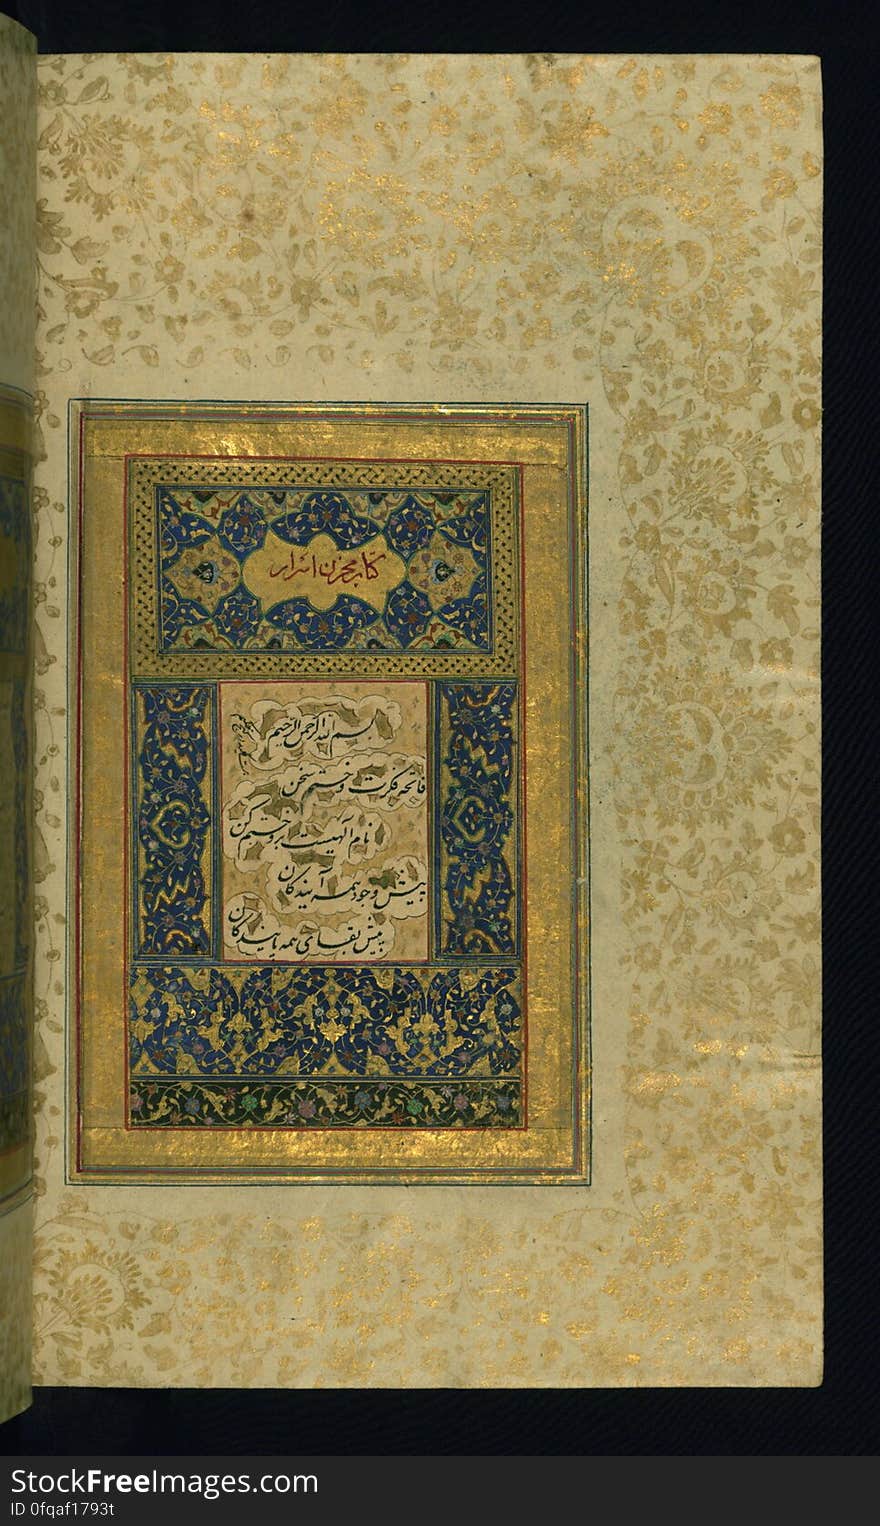 کتاب مخزن اسرار
بسم الله الرحمن الرحیم
فاتحه فکرت و ختم سخن
نام الهیست برو ختم کن
پیش وجود همه آیندگان
بیش بقای همه پایندگان
StockFreeImages.com
ID 0fqaf1793t